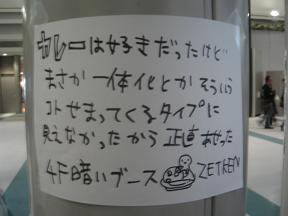 カレーは好きだったけど
まさか一体化とかそういう
コトせまってくるタイプに
見えなかったから正直あせった
4F暗いブース ZETKEN